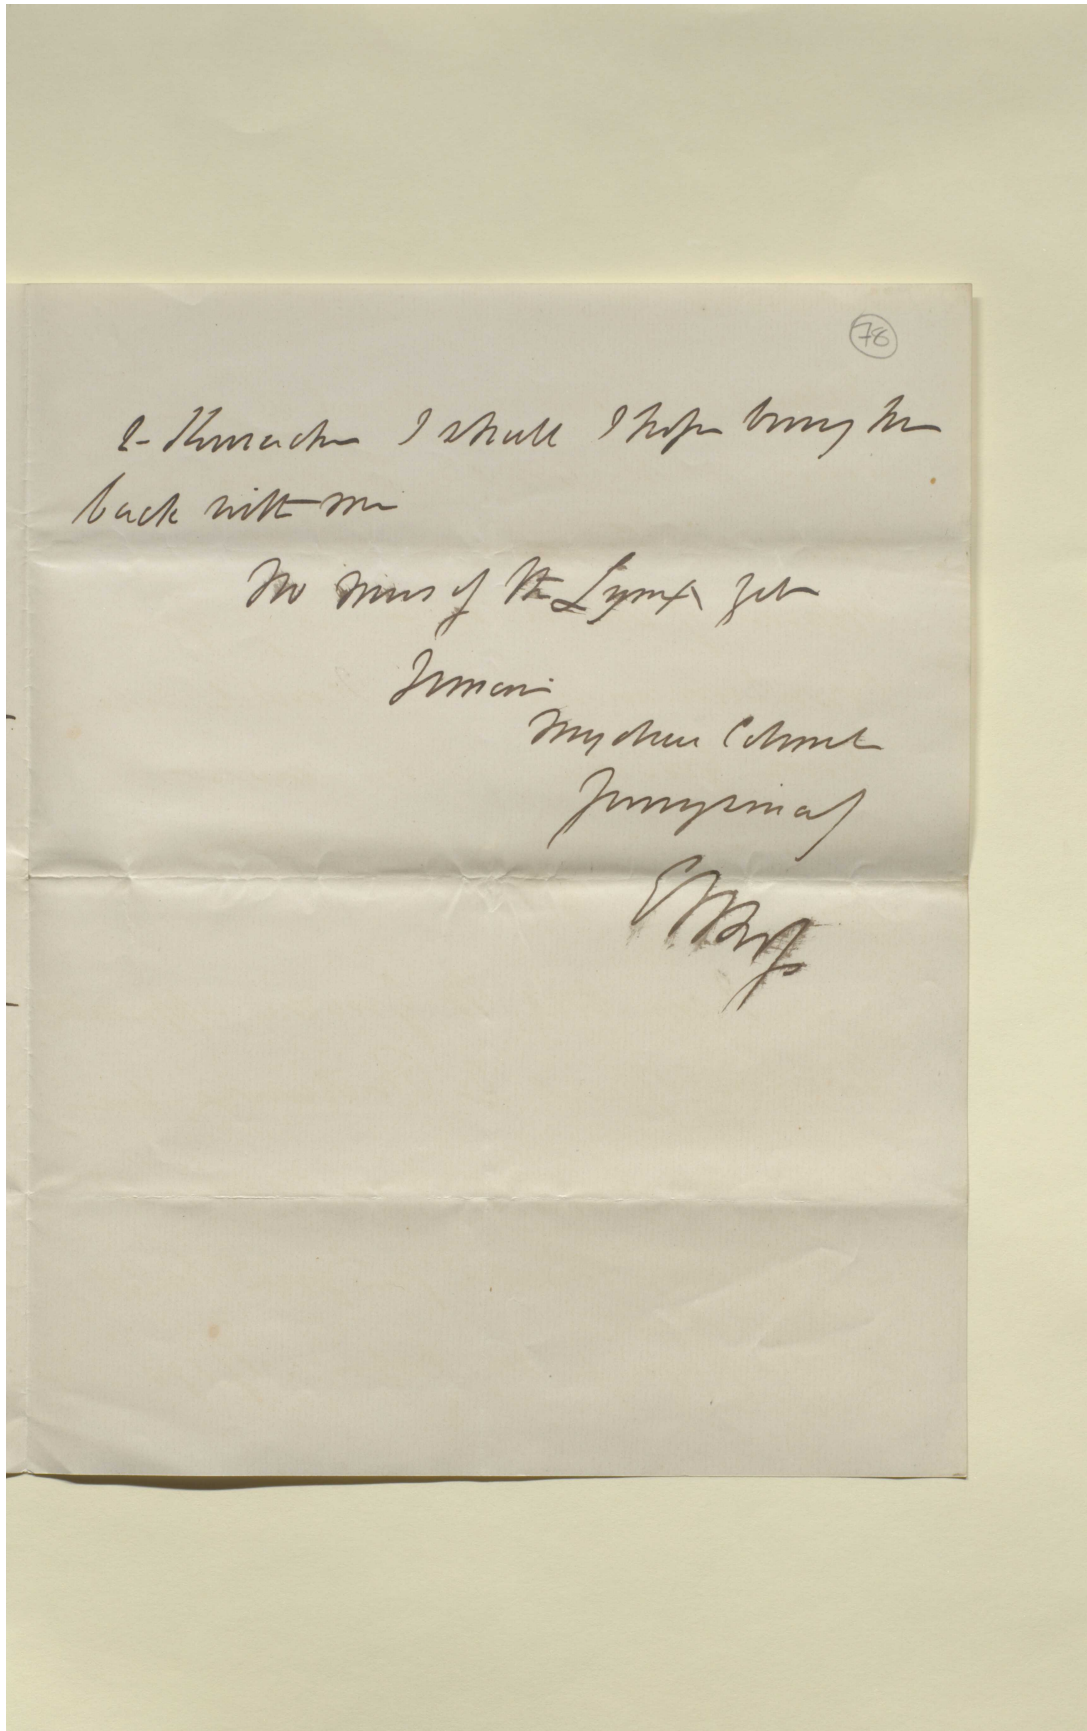 78
to Kurrachee I shall I hope bring him
back with me
No news of the Lynx yet
I remain
My dear Colonel
Yours sincerely